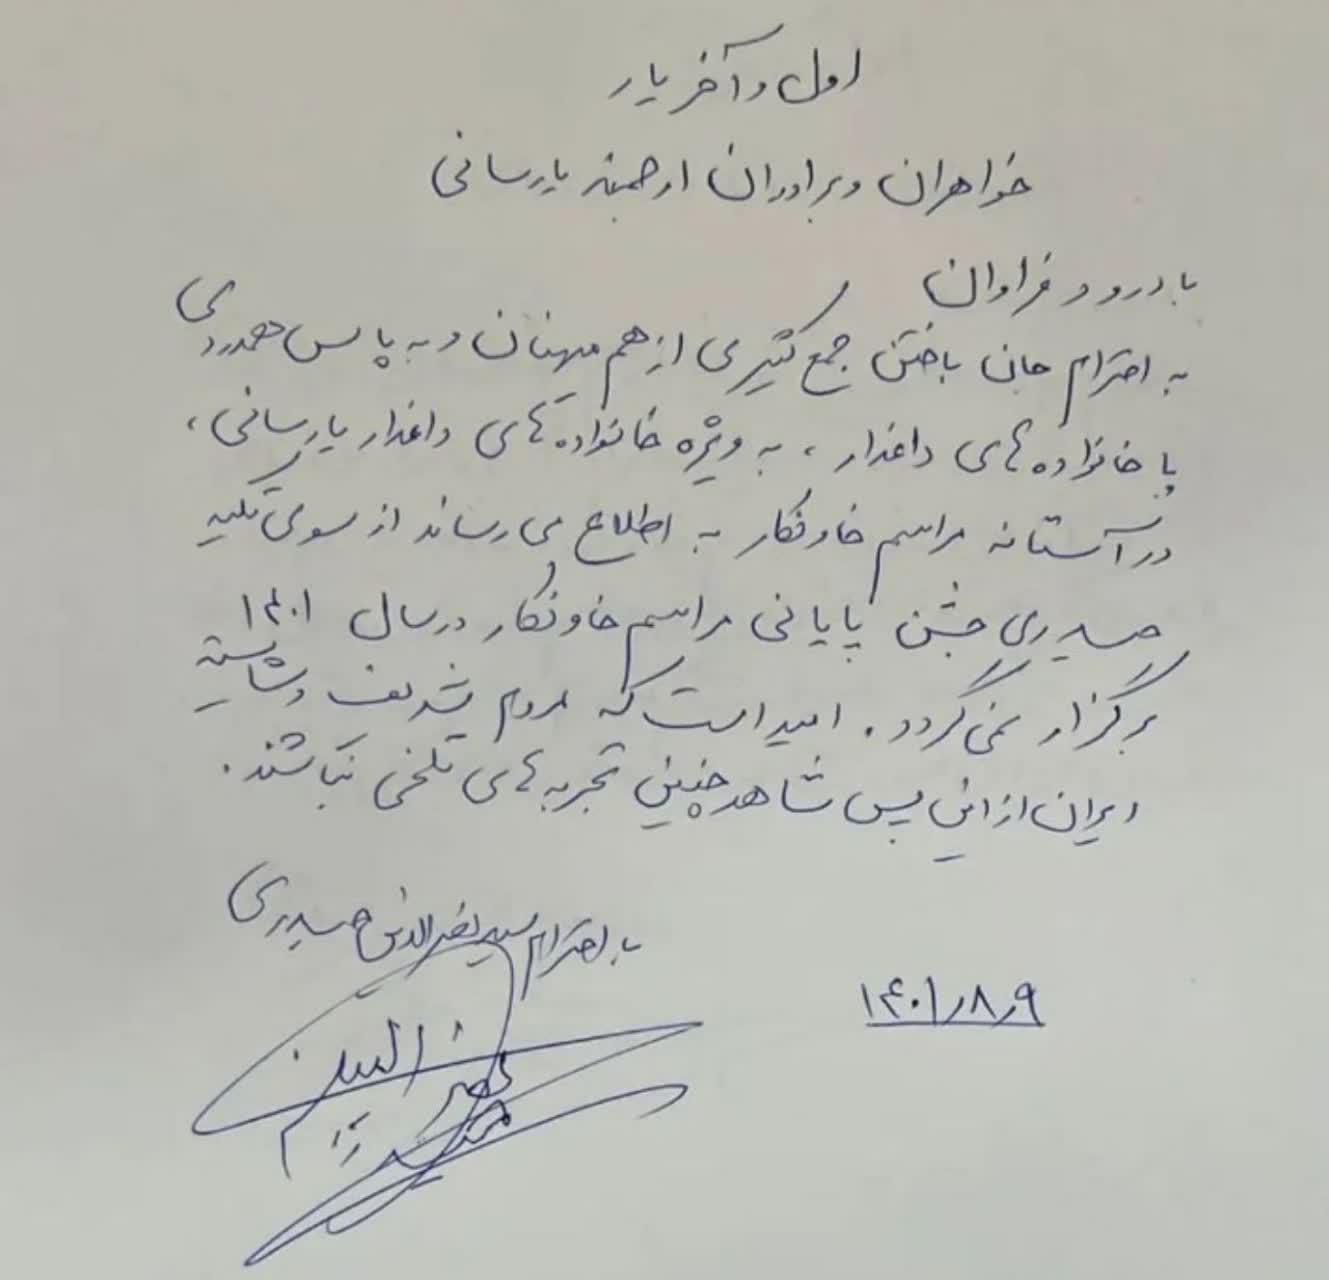 اول و آخر یار
خواهران و برادران ارجمند یارسانی
با درود فراوان
به احترام جان باختن جمع کثیری از هم میهنان و به پاس همدردی
با خانواده های داغدار ، به ویژه خانواده های داغدار یارسانی ،
در آستانه مراسم خاونکار به اطلاع می رساند از سوی تکیه
حیدری جشن پایانی مراسم خاونکار در سال ۱۴۰۱
برگزار نمی گردد . امید است که مردم شریف و شایسته
ایران از این پس شاهد چنین تجربه های تلخی نباشند .
با احترام سید نصرالدین حیدری
۱۴۰۱٫۸٫۹